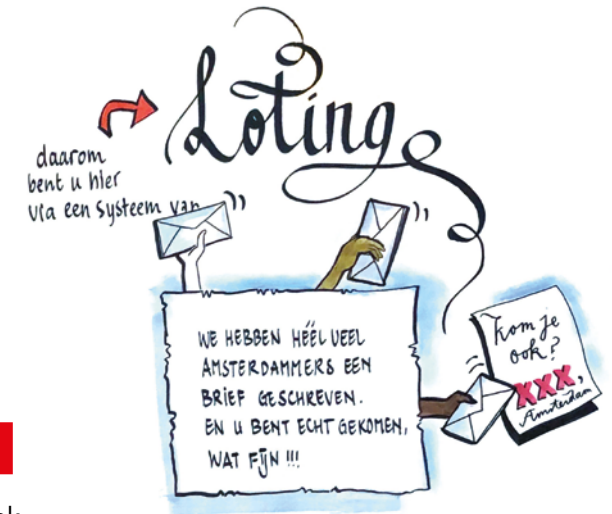 daarom
bent u hier
via een systeem van
Loting
WE HEBBEN HÉÉL VEEL
AMSTERDAMMERS EEN
BRIEF GESCHREVEN.
EN U BENT ECHT GEKOMEN,
WAT FIJN !!!
Kom je
ook?
XXX,
Amsterdam